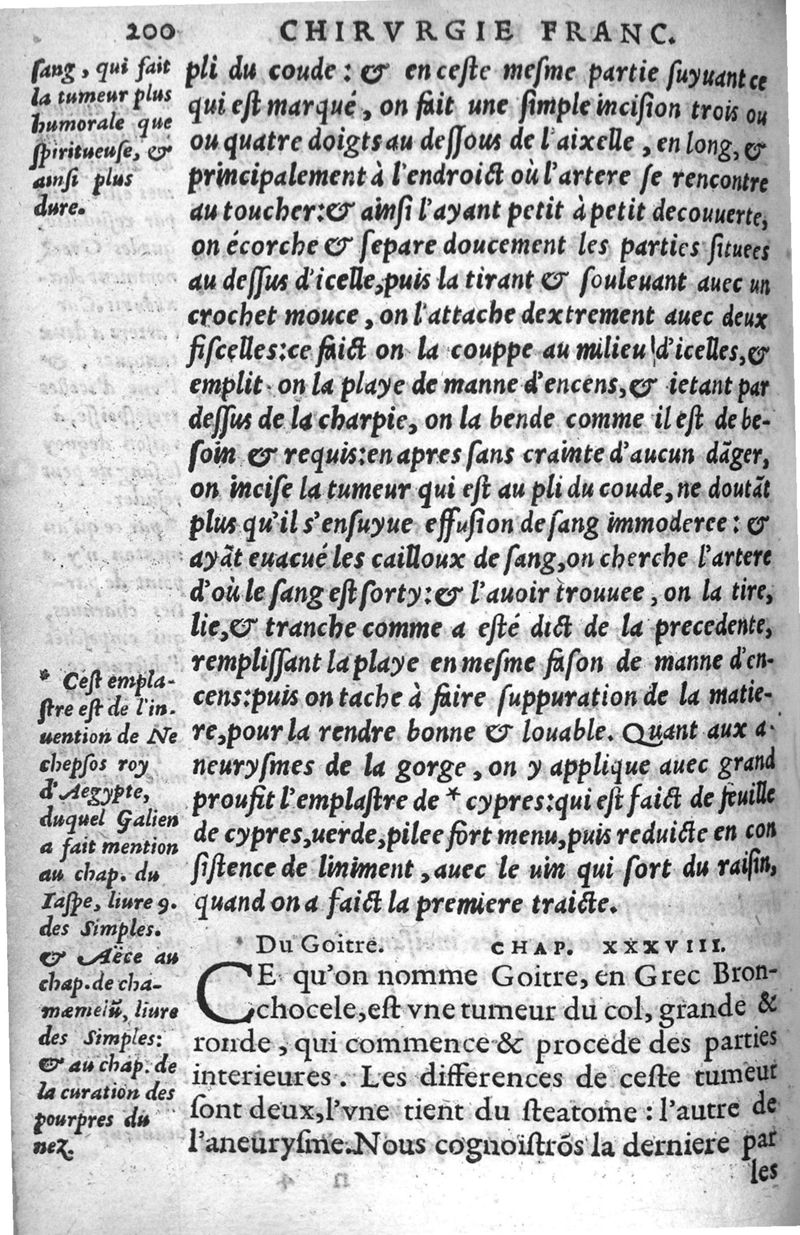 200 CHIRVRGIE FRANC.
sang, qui fait
la tumeur plus
humorale que
spiritueuse, &
ainsi plus
dure.
pli du coude : & en ceste mesme partie suyuant ce
qui est marqué, on fait une simple incision trois ou
ou quatre doigts au dessous de l'aixelle, en long, &
principalement à l'endroict où l'artere se rencontre
au toucher:& ainsi l'ayant petit à petit decouuerte,
on écorche & separe doucement les parties situees
au dessus d'icelle,puis la tirant & souleuant auec un
crochet mouce, on l'attache dextrement auec deux
fiscelles:ce faict on la couppe au milieu d'icelles,&
emplit on la playe de manne d'encens,& ietant par
dessus de la charpie, on la bende comme il est de be-
soin & requis:en apres sans crainte d'aucun dãger,
on incise la tumeur qui est au pli du coude, ne doutãt
plus qu'il s'ensuyue effusion de sang immoderee : &
ayãt euacué les cailloux de sang,on cherche l'artere
d'où le sang est sorty:& l'auoir trouuee, on la tire,
lie,& tranche comme a esté dict de la precedente,
remplissant la playe en mesme fason de manne d'en-
cens:puis on tache à faire suppuration de la matie-
re,pour la rendre bonne & louable. Quant aux a-
neurysmes de la gorge, on y applique auec grand
proufit l'emplastre de * cypres:qui est faict de feuille
de cypres,uerde,pilee fort menu,puis reduicte en con
sistence de liniment, auec le uin qui sort du raisin,
quand on a faict la premiere traicte.
* Cest empla-
stre est de l'in-
uention de Ne
chepsos roy
d'Aegypte,
duquel Galien
a fait mention
au chap. du
Iaspe, liure 9.
des Simples.
& Aëce au
chap. de cha-
mæmelũ, liure
des Simples:
& au chap. de
la curation des
pourpres du
nez.
Du Goitre. CHAP. XXXVIII.
CE qu'on nomme Goitre, en Grec Bron-
chocele,est vne tumeur du col, grande &
ronde, qui commence & procede des parties
interieures. Les differences de ceste tumeur
sont deux,l'vne tient du steatome : l'autre de
l'aneurysme.Nous cognoistrõs la derniere par
les